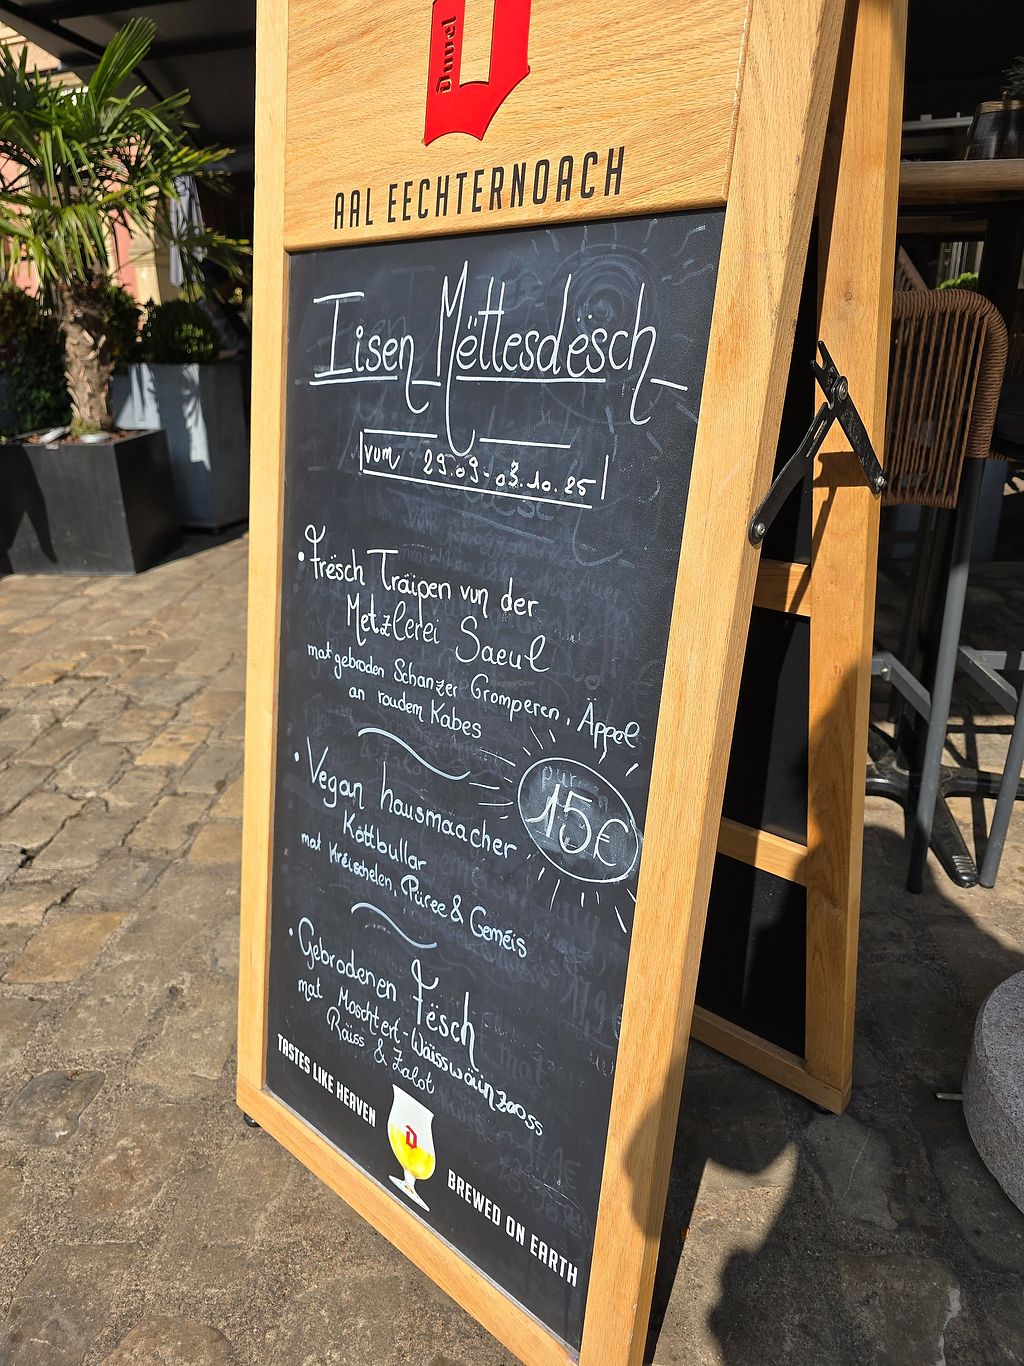 Duvel
AAL EECHTERNOACH
Iisen Mëttesdësch
vum 29.09-03.10.25
• Frësch Träipen vun der
Metzlerei Saeul
mat gebroden Schanzer Gromperen, Äppel
an roudem Kabes
pur
15€
• Vegan hausmaacher
Köttbullar
mat Kréischelen, Püree & Geméis
• Gebrodenen Fësch
mat Moschtert-Wäisswäinzooss
Räiss & Zalot
TASTES LIKE HEAVEN
BREWED ON EARTH